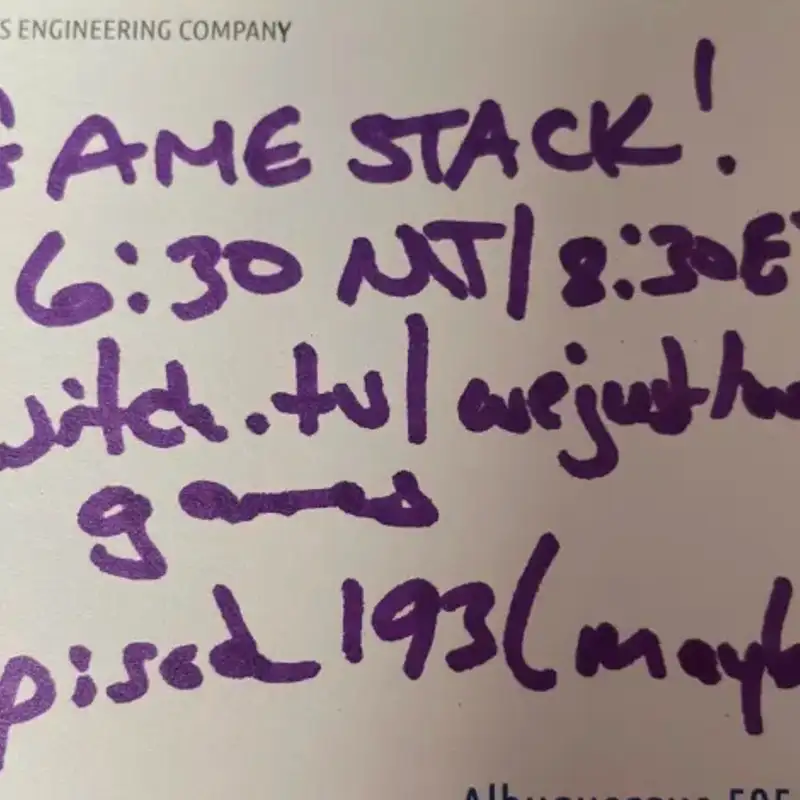 S ENGINEERING COMPANY
GAME STACK!
6:30 MT/8:30E
witch.tv/wejust
games
pisod 193 (mayb
Albuquerque 505